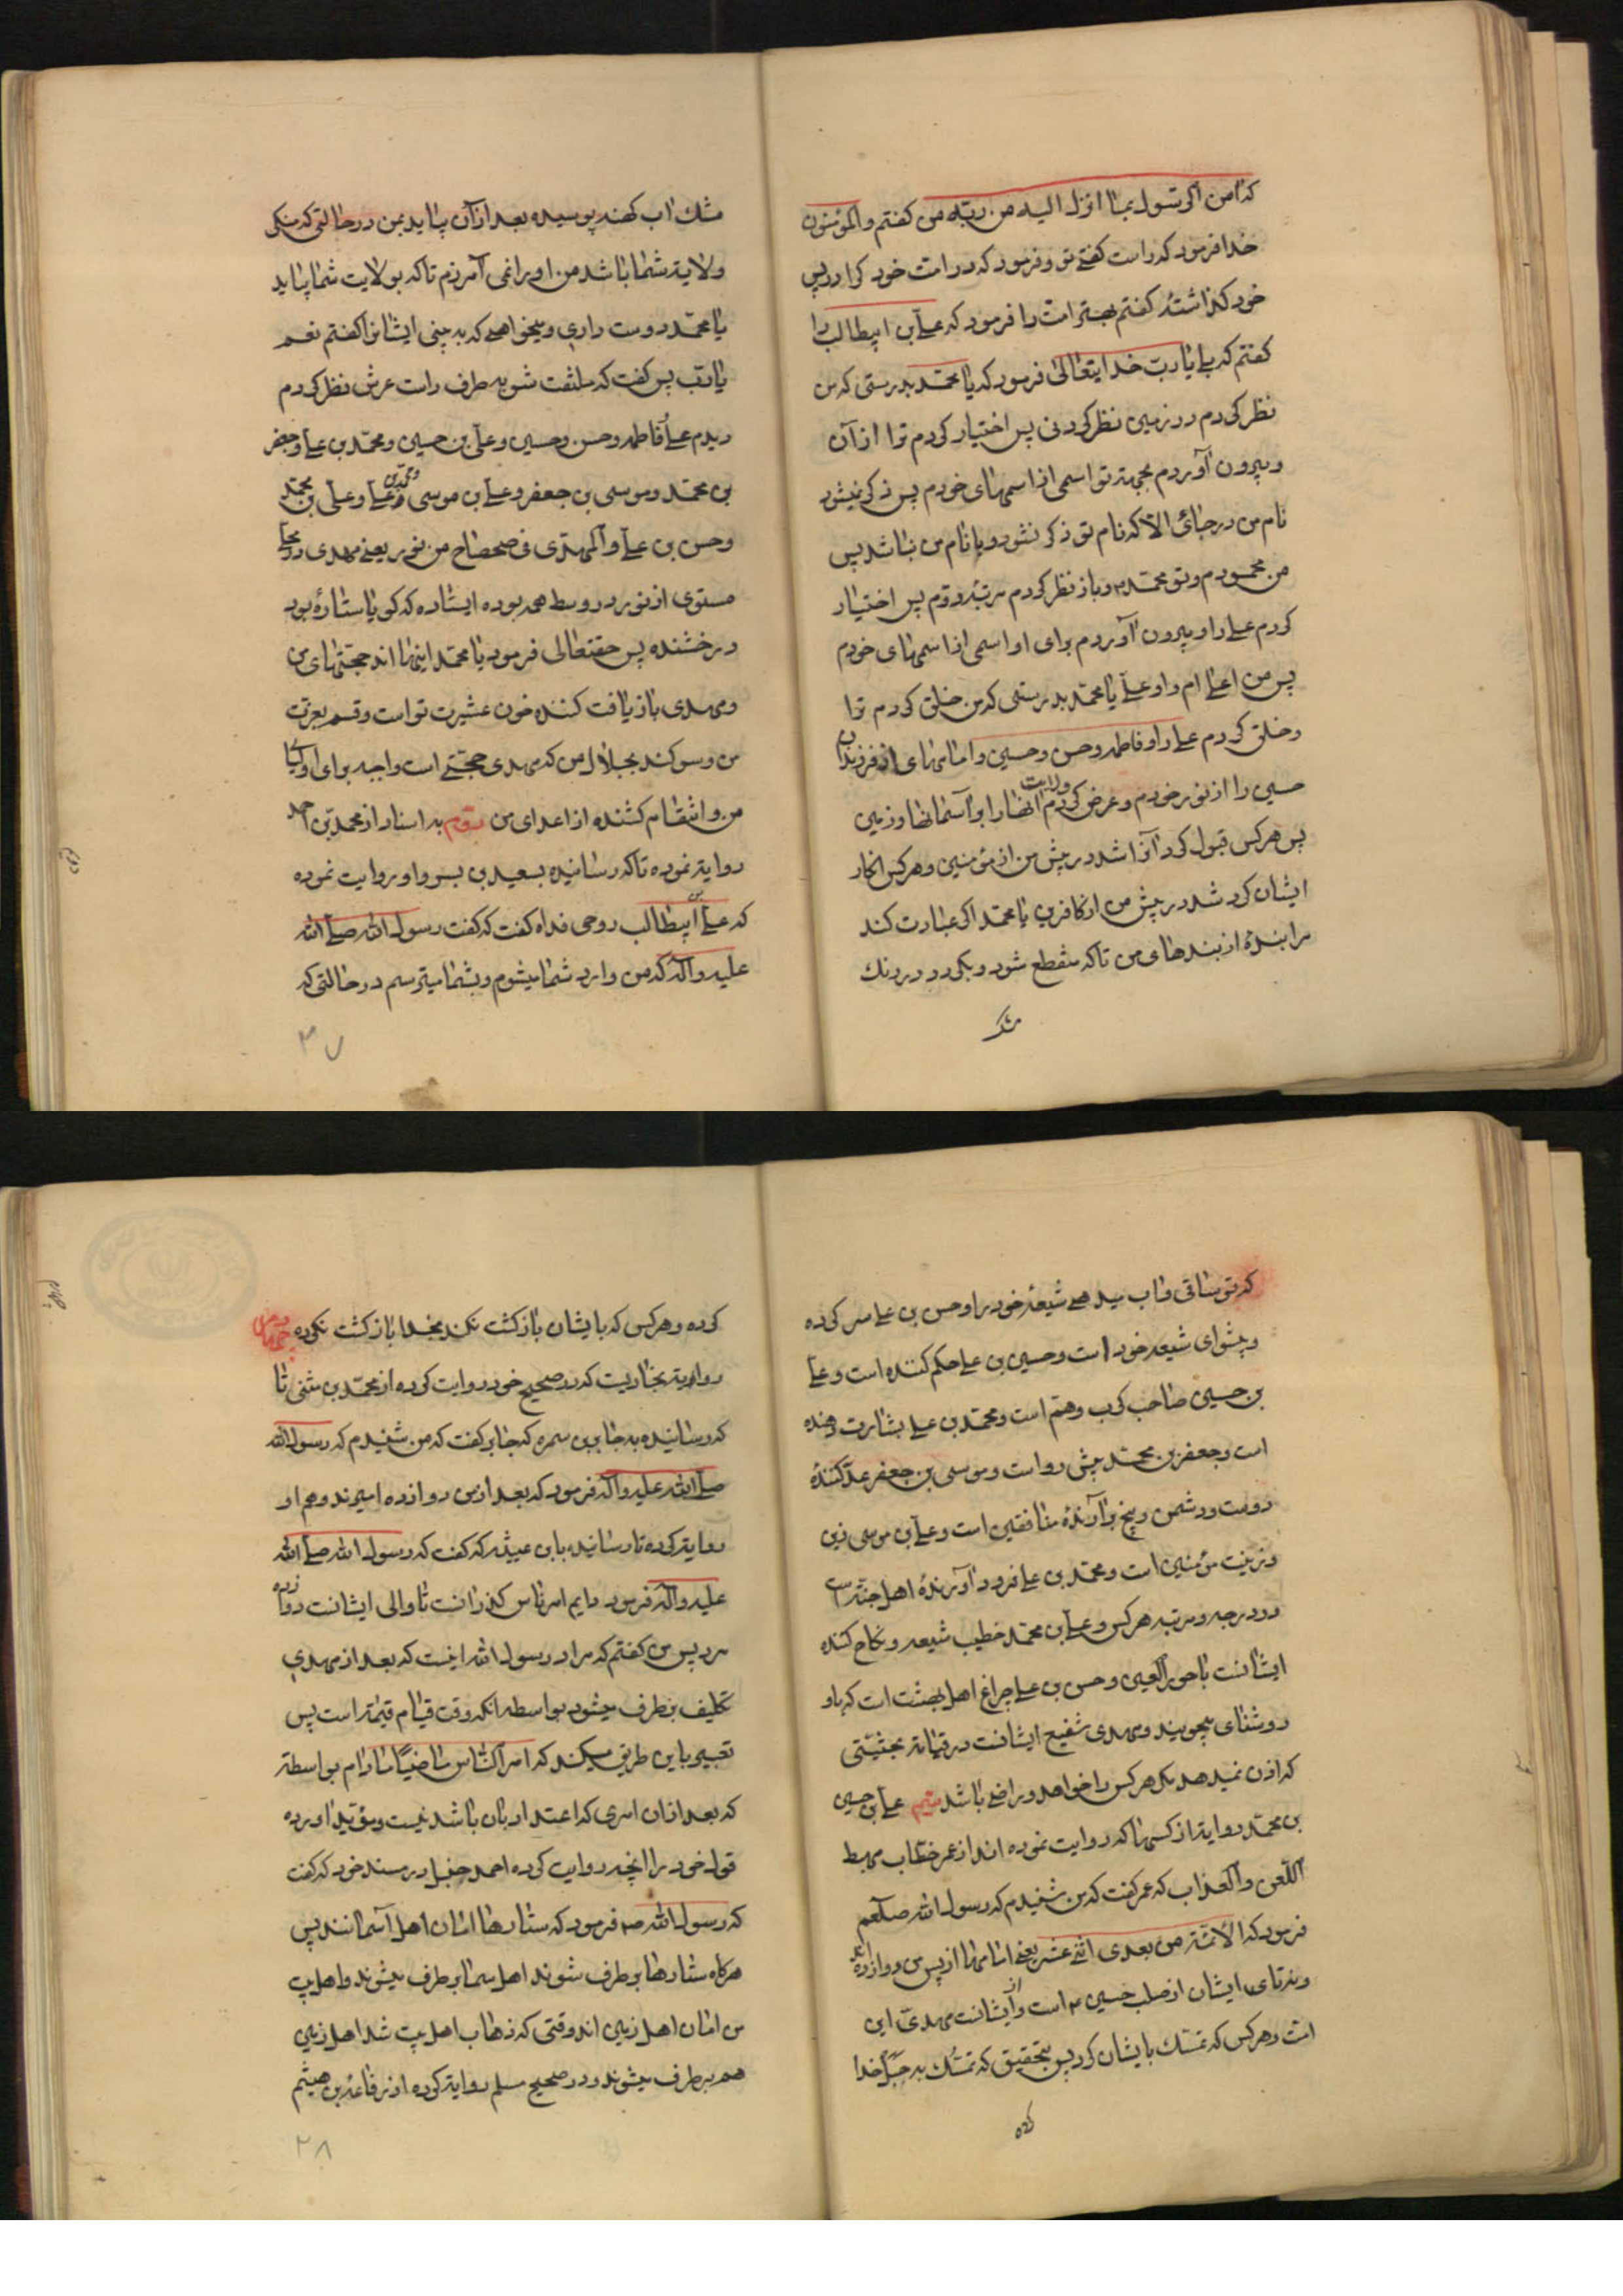 که آمن الرسول بما انزل الیه من ربه من کفتم والمؤمنون
خدا فرمود که راست کفتی تو و فرمود که در امت خود کرا در پس
خود کذاشتهٔ کفتم بهتر امت را فرمود که علی بن ابیطالب را
کفتم که بلی یا رب خدایتعالی فرمود که یا محمد بدرستی که من
نظر کردم در زمین نظر کردنی پس اختیار کردم ترا از آن
و بیرون آوردم بجهة تو اسمی از اسمهای خودم پس ذکر نمیشود
نام من در جائی الا که نام تو ذکر نشود و با نام من نباشد پس
من محمودم و تو محمد و باز نظر کردم مرتبه دوم پس اختیار
کردم علی را و بیرون آوردم برای او اسمی از اسمهای خودم
پس من اعلی ام و او علی یا محمد بدرستی که من خلق کردم ترا
و خلق کردم علی را و فاطمه و حسن و حسین و امامهای از فرزندان
حسین را از نور خودم و عرض کردم ولایت انها را بر آسمانها و زمین
پس هر کس قبول کرد آنرا شد در پیش من از مؤمنین و هر کس انکار
ایشان کرد شد در پیش من از کافرین یا محمد اکر عبادت کند
مرا بندهٔ از بندهای من تا که منقطع شود و بکردد در رنک
مشک
مشک آب کهنه پوسیده بعد از آن بیاید بمن در حالتی که منکر
ولایة شما باشد من او را نمی آمرزم تا که بولایت شما بیاید
یا محمد دوست داری و میخواهی که به بینی ایشانرا کفتم نعم
یا رب پس کفت که ملتفت شو بطرف راست عرش نظر کردم
دیدم علی و فاطمه و حسن و حسین و علی بن حسین و محمد بن علی و جعفر
بن محمد و موسی بن جعفر و علی بن موسی و محمد بن علی و علی بن محمد
و حسن بن علی و المهدی فی ضحضاح من نور یعنی مهدی در جای
مستوی از نور در وسط همه بوده ایستاده که کویا ستارهٔ بود
درخشنده پس حقتعالی فرمود یا محمد اینها اند حجتهای من
و مهدی باز یافت کننده خون عشیرت تو است و قسم بعزت
من و سوکند بجلال من که مهدی حجتی است واجبه برای اولیا
من و انتقام کشنده از اعدای من سوم به اسناد از محمد بن احمد
روایة نموده تا که رسانیده بسعید بن بسر و او روایت نموده
که علی بن ابیطالب روحی فداه کفت که کفت رسول الله صلی الله
علیه و آله که من وارد شما میشوم و بشما میترسم در حالتی که
۳۷
که تو ساقی و آب میدهی شیعهٔ خود را و حسن بن علی سر کرده
و پیشوای شیعه خود است و حسین بن علی حکم کننده است و علی
بن حسین صاحب کرب و هم است و محمد بن علی بشارت دهنده
است و جعفر بن محمد پیش رو است و موسی بن جعفر عد کنندهٔ
دوست و دشمن و بیخ بر آرندهٔ منافقین است و علی بن موسی زین
و زینت مؤمنین است و محمد بن علی فرود آورندهٔ اهل جنة است
در درجه و مرتبه هر کس و علی بن محمد خطیب شیعه و نکاح کننده
ایشانست با حور العین و حسن بن علی چراغ اهل بهشت است که باو
روشنای میجویند و مهدی شفیع ایشانست در قیامة بحیثیتی
که اذن نمیدهد مکر هر کس را خواهد و راضی باشد علی بن حسین
بن محمد روایة از کسها که روایت نموده اند از عمر خطاب مهبط
اللعن و العذاب که عمر کفت که من شنیدم که رسول الله صلعم
فرمود که الائمة من بعدی اثنی عشر یعنی امامها از پس من دوازده اند
و نه تای ایشان از صلب حسین است و از ایشانست مهدی این
امت و هر کس که تمسک بایشان کرد پس بتحقیق که تمسک به حبل خدا
کرده
کرده و هر کس که بایشان بازکشت نکند بخدا بازکشت نکرده چهارم
روایة بخاریست که در صحیح خود روایت کرده از محمد بن مثنی تا
که رسانیده به جابر بن سمره که جابر کفت که من شنیدم که رسول الله
صلی الله علیه و اله فرمود که بعد از من دوازده امیرند و هم او
روایة کرده تا رسانیده بابن عیینه که کفت که رسول الله صلی الله
علیه و آله فرمود دایم امر ناس کذرانست تا والی ایشانست دوازده
مرد پس من کفتم که مراد رسول الله اینست که بعد از مهدی
تکلیف بر طرف میشود بواسطه انکه وقت قیام قیمة است پس
تعبیر باین طریق میکند که امر الناس ماضیا مادام بواسطه
که بعد از ان امری که اعتداد بان باشد نیست و مؤید اورده
قول خود را انچه روایت کرده احمد حنبل در مسند خود که کفت
که رسول الله فرمود که ستارها امان اهل آسمانند پس
هرکاه ستارها بر طرف شوند اهل سما بر طرف میشوند و اهل بیت
من امان اهل زمین اند وقتی که ذهاب اهل بیت شد اهل زمین
هم بر طرف میشوند و در صحیح مسلم روایة کرده از رفاعة بن هیثم
۳۸